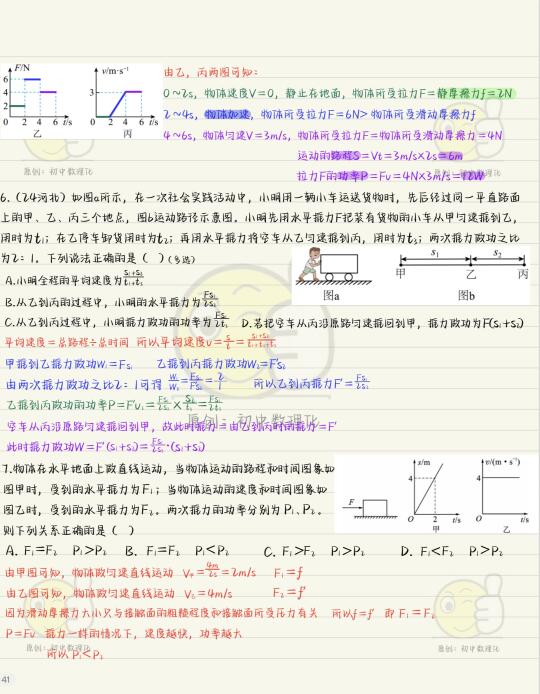 F/N
6
4
2
0 2 4 6 t/s
乙
v/m·s⁻¹
3
0 2 4 6 t/s
丙
由乙，丙两图可知：
0~2s，物体速度V=0，静止在地面，物体所受拉力F=静摩擦力f=2N
2~4s，物体加速，物体所受拉力F=6N>物体所受滑动摩擦力f
4~6s，物体匀速V=3m/s，物体所受拉力F=物体所受滑动摩擦力=4N
运动的路程S=Vt=3m/s×2s=6m
拉力F的功率P=Fv=4N×3m/s=12W
原创：初中数理化
原创：初中数理化
6.(24河北)如图a所示，在一次社会实践活动中，小明用一辆小车运送货物时，先后经过同一平直路面
上的甲、乙、丙三个地点，图b运动路径示意图。小明先用水平推力F把装有货物的小车从甲匀速推到乙，
用时为t₁；在乙停车卸货用时为t₂；再用水平推力将空车从乙匀速推到丙，用时为t₃；两次推力做功之比
为2：1。下列说法正确的是（ ）(多选)
A.小明全程的平均速度为
B.从乙到丙的过程中，小明的水平推力为
图a
s₁ s₂
甲 乙 丙
图b
C.从乙到丙过程中，小明推力做功的功率为 D.若把空车从丙沿原路匀速推回到甲，推力做功为F(S₁+S₂)
平均速度=总路程÷总时间 所以平均速度v=
甲推到乙推力做功W₁=FS₁ 乙推到丙推力做功W₂=F'S₂
由两次推力做功之比2：1可得 所以乙到丙推力F'=
乙推到丙做功的功率P=F'v₂=
空车从丙沿原路匀速推回到甲，故此时推力=由乙到丙时的推力=F'
此时推力做功W=F'(S₁+S₂)=
原创：初中数理化
7.物体在水平地面上做直线运动，当物体运动的路程和时间图象如
图甲时，受到的水平推力为F₁；当物体运动的速度和时间图象如
图乙时，受到的水平推力为F₂。两次推力的功率分别为P₁、P₂。
则下列关系正确的是（ ）
F
s/m
4
O 2 t/s
甲
v/(m·s⁻¹)
4
O t/s
乙
A. F₁=F₂ P₁>P₂ B. F₁=F₂ P₁<P₂ C. F₁>F₂ P₁>P₂ D. F₁<F₂ P₁>P₂
由甲图可知，物体做匀速直线运动 V甲=4m/2s=2m/s F₁=f
由乙图可知，物体做匀速直线运动 V乙=4m/s F₂=f'
因为滑动摩擦力大小只与接触面的粗糙程度和接触面所受压力有关 所以f=f' 即F₁=F₂
P=Fv 推力一样的情况下，速度越快，功率越大
所以P₁<P₂
原创：初中数理化
原创：初中数理化
41